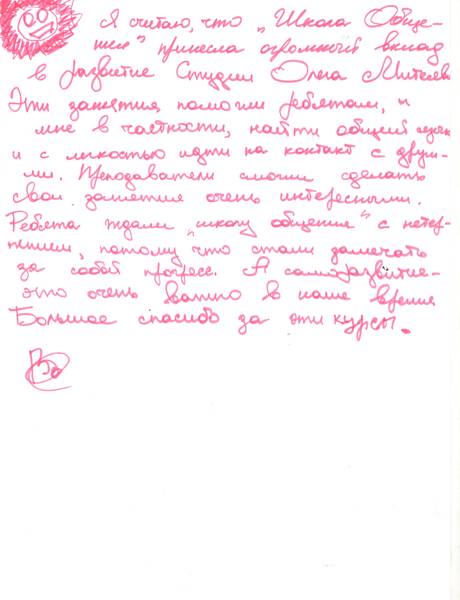 Я считаю, что „Школа Обще-
ния" принесла огромный вклад
в развитие Студии Олега Митяева
Эти занятия помогли ребятам, и
мне в частности, найти общий язык
и с лёгкостью идти на контакт с други-
ми. Преподаватели смогли сделать
свои занятия очень интересными.
Ребята ждали „школу общения" с нетер-
пением, потому что стали замечать
за собой прогресс. А саморазвитие-
это очень важно в наше время
Большое спасибо за эти курсы.